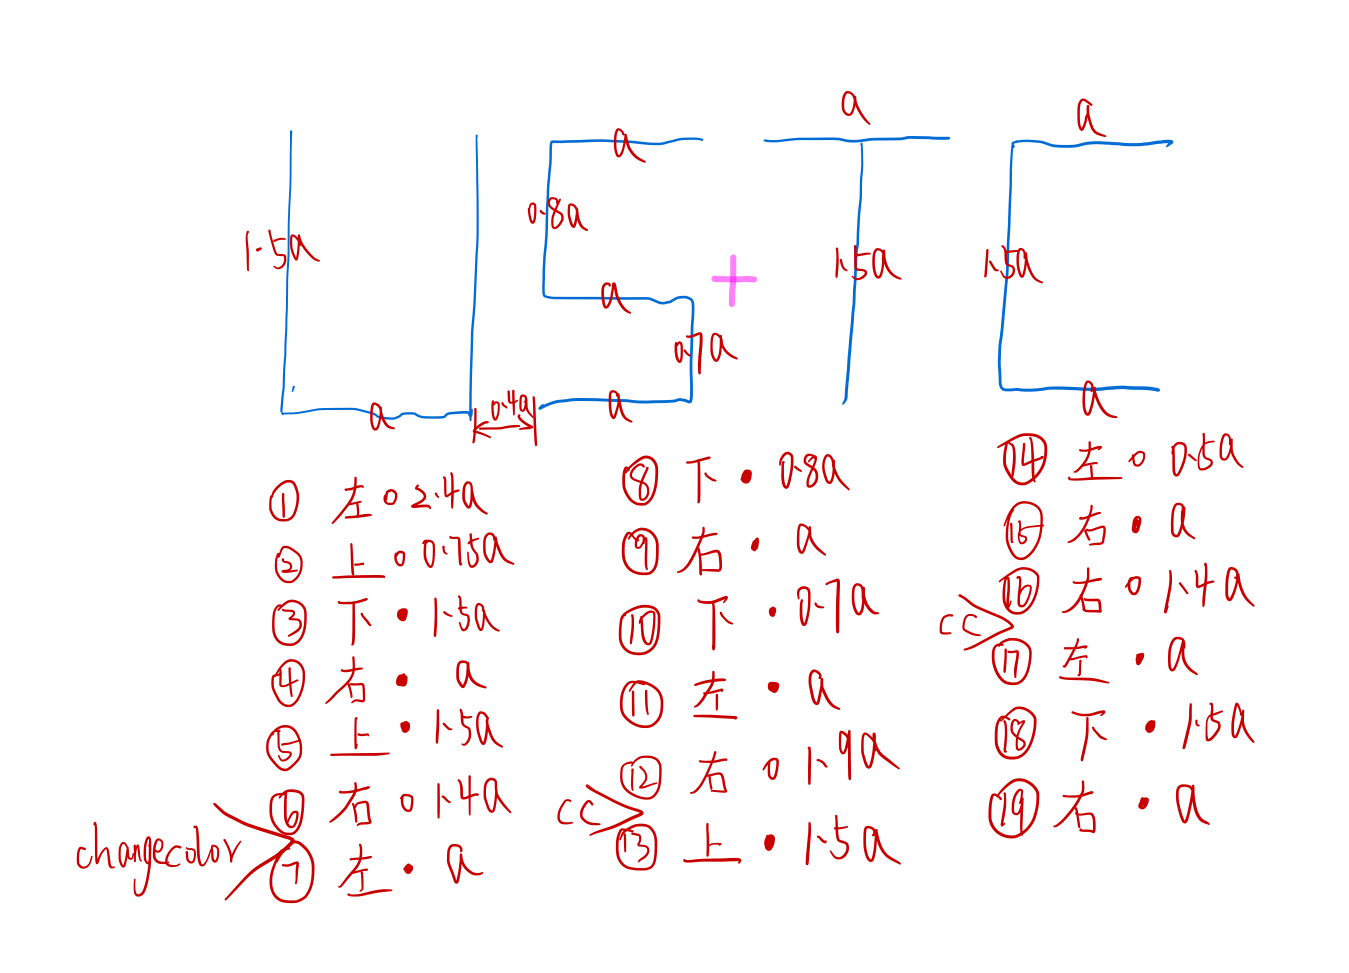 a
a
a
0.8a
1.5a
1.5a
1.5a
a
0.7a
a
0.4a
a
a
① 左 o 2.4a
② 上 o 0.75a
③ 下 • 1.5a
④ 右 • a
⑤ 上 • 1.5a
⑥ 右 o 1.4a
changecolor
⑦ 左 • a
⑧ 下 • 0.8a
⑨ 右 • a
⑩ 下 • 0.7a
⑪ 左 • a
⑫ 右 o 1.9a
cc
⑬ 上 • 1.5a
⑭ 左 o 0.5a
⑮ 右 • a
⑯ 右 o 1.4a
cc
⑰ 左 • a
⑱ 下 • 1.5a
⑲ 右 • a